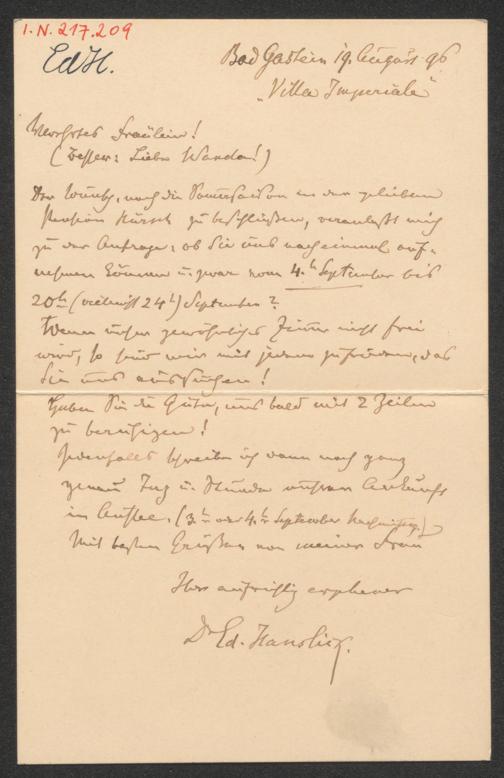 I. N. 217.209
EdH.
Bad Gastein 19. August 96
„Villa Imperiale“
Werthestes Fräulein!
(Besser: Liebe Wanda!)
Der Wunsch, noch die Sommersaison in der geliebten
Pension Kürsch zu beschließen, veranlaßt mich
zu der Anfrage: ob Sie uns noch einmal auf-
nehmen können u. zwar vom 4. September bis
20ten (vielleicht 24t) September?
Wenn unser gewöhnliches Zimmer nicht frei
wird, so sind wir mit jedem zufrieden, das
Sie uns aussuchen!
Haben Sie die Güte, uns bald mit 2 Zeilen
zu beruhigen!
Jedenfalls schreibe ich dann noch ganz
genau Tag u. Stunde unserer Ankunft
in Aussee. (3. oder 4. September Nachmittag.)
Mit besten Grüßen von meiner Frau
Ihr aufrichtig ergebener
Dr Ed. Hanslick.